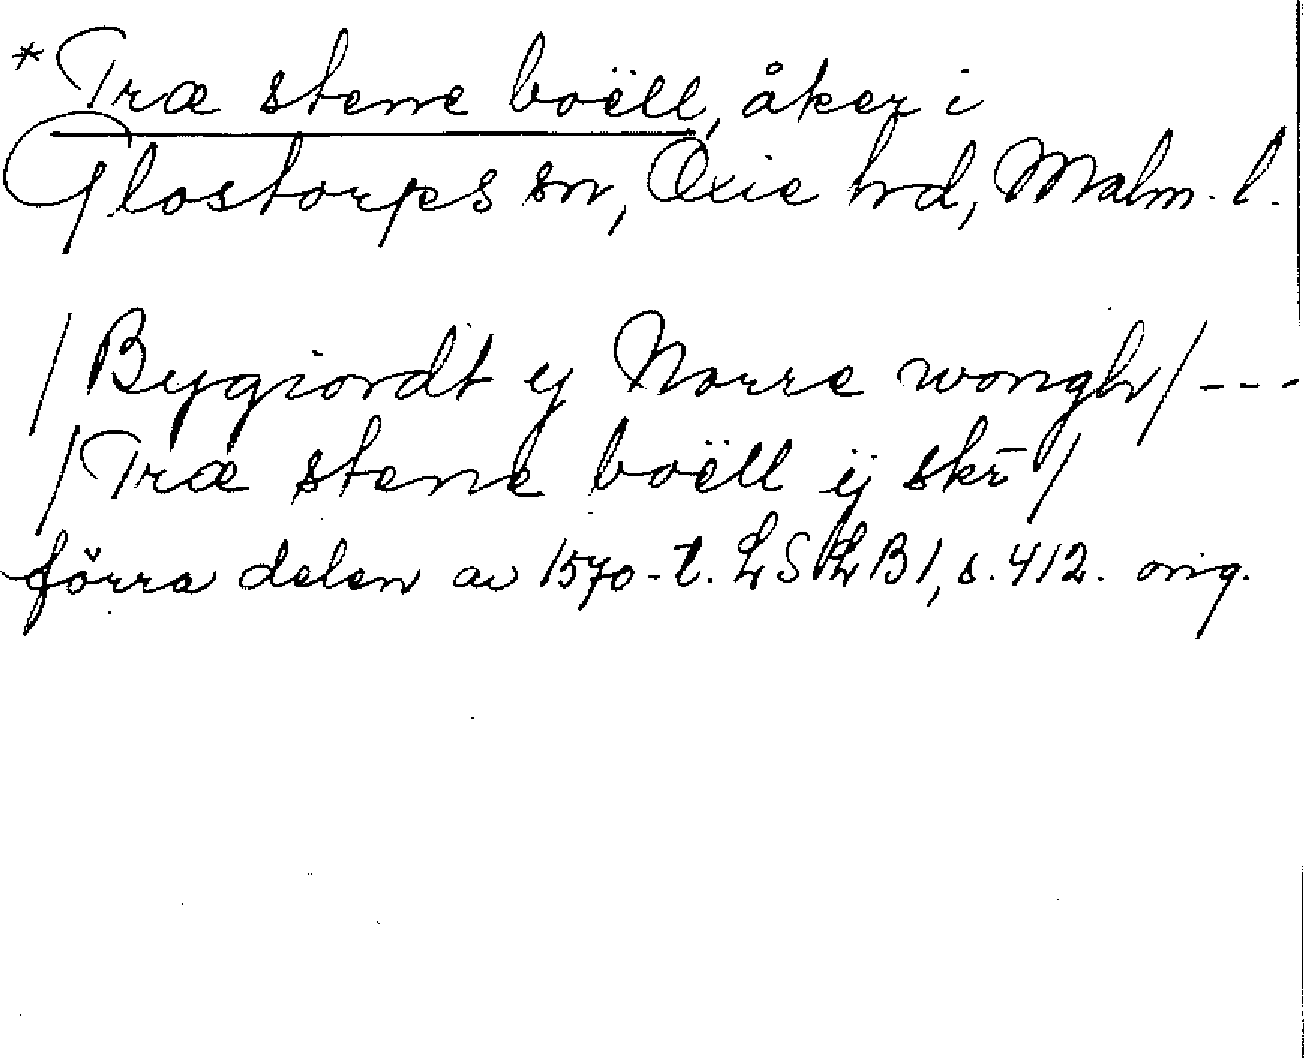 *Træ stene boëll, åker i
Glostorps sn, Oxie hd, Malm. l.
/Bygiordt y Norre wongh/ ---
/Træ stene boëll ÿ skr̄/
förra delen av 1570-t. LSLB1, s. 412. orig.